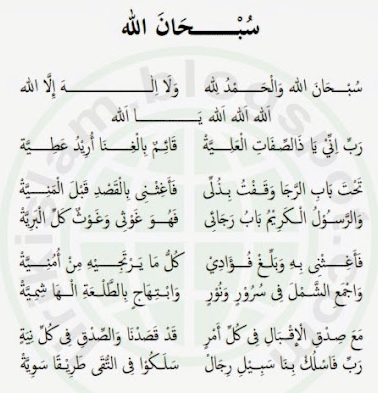 سُبْـــــــحَانَ الله
سُبْـحَانَ الله وَالْحَـمْـدُ لِلّه وَلَا إِلـــــــــهَ إِلَّا الله
اَلله اَلله اَلله يَـــــــــا اَلله
رَبِّ اِنِّيْ يَا ذَالصِّفَاتِ الْعَلِـيَّةْ قَائِـمٌ بِالْغِـنَـا أُرِيْدُ عَطِـيَّةْ
تَحْتَ بَابِ الرَّجَا وَقَـفْتُ بِـذُلِّى فَـأَغِـثْـنِى بِالْقَصْدِ قَبْلَ الْمَنِـيَّةْ
وَالرَّسُوْلُ الْكَرِيْمُ بَابُ رَجَائِى فَـهُـوَ غَوْثِى وَغَوْثُ كُلِّ الْبَرِيَّةْ
فَـأَغِـثْـنِى بِهِ وَبَلِّـغْ فُـؤَادِيْ كُلُّ مَا يَرْتَجِـيْـهِ مِنْ أُمْـنِـيَّةْ
وَاجْمَعِ الشَّمْلَ فِى سُرُورٍ وَنُوْرٍ وَابْـتِهَاجٍ بِالطَّلْـعَةِ الْـهَا شِمِيَّةْ
مَعَ صِدْقِ الْإِقْبَالِ فِى كُلِّ أَمْرٍ قَدْ قَصَدْنَا وَالصِّدْقِ فِى كُلِّ نِيَةٍ
رَبِّ فَاسْلُكْ بِـنَا سَبِـيْـلَ رِجَالٍ سَلَكُوْا فِى التُّقَى طَرِيْـقًا سَوِيَّةْ